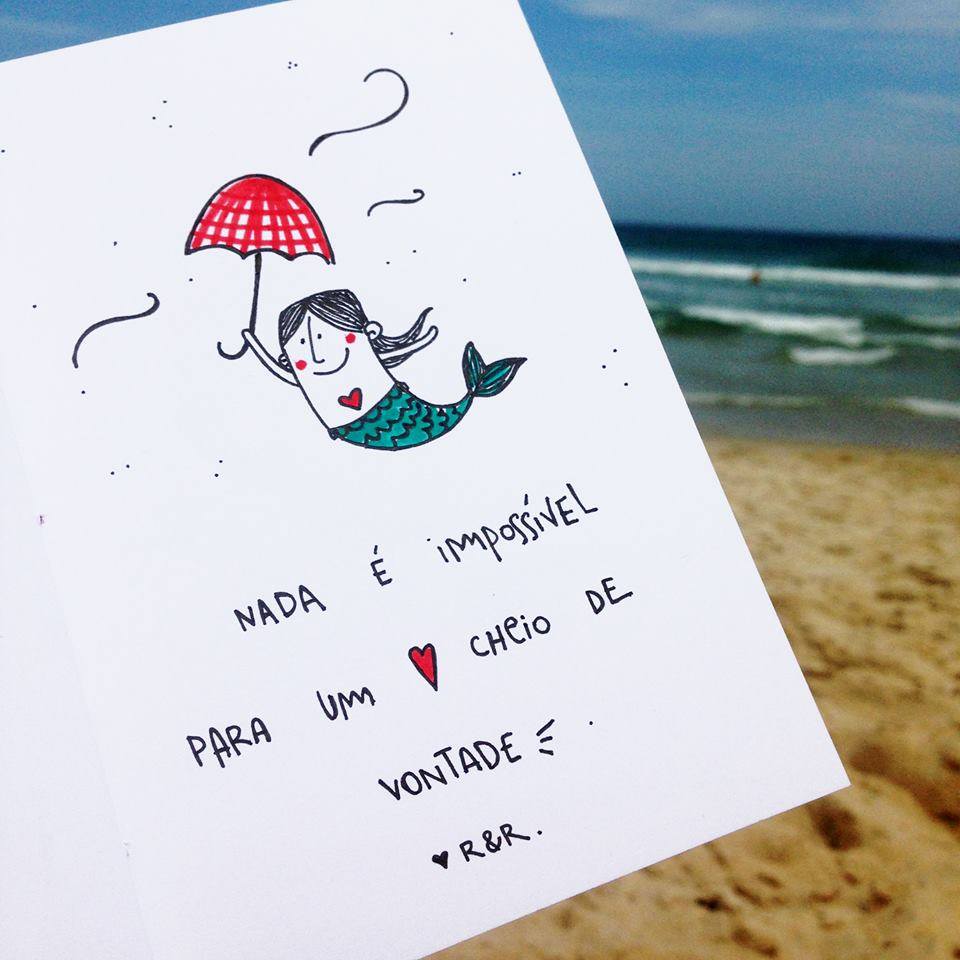 NADA É IMPOSSÍVEL
PARA UM ♥ CHEIO DE
VONTADE.
♥ R&R.